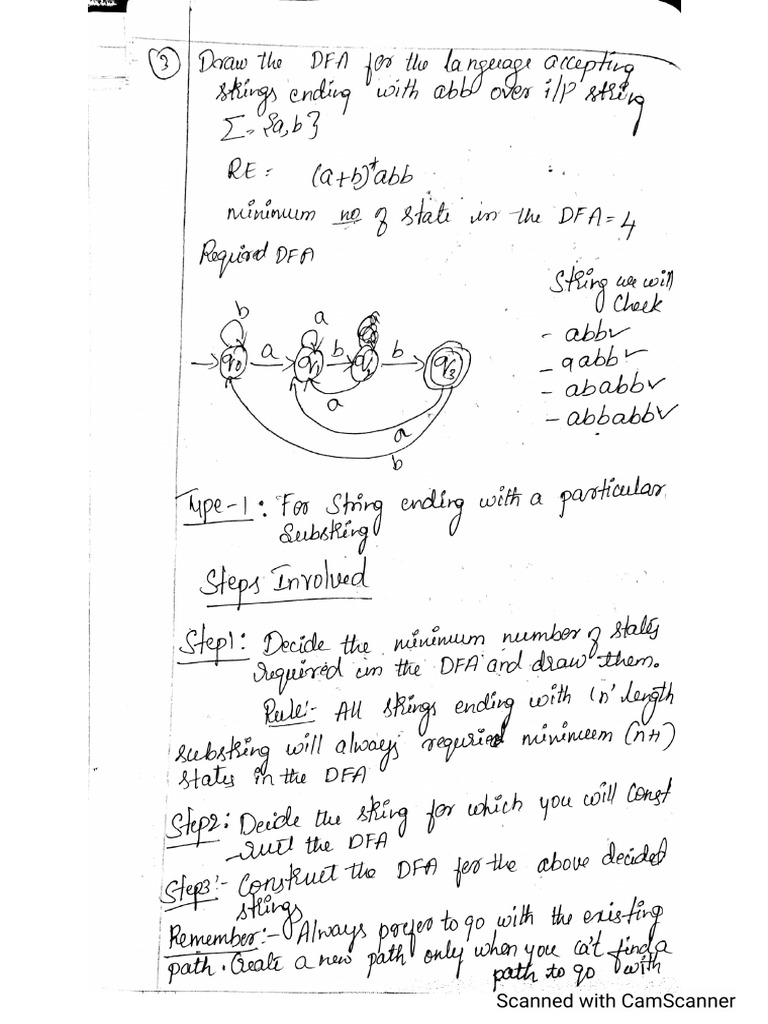 (3) Draw the DFA for the language accepting
strings ending with abb over i/p string
Σ = {a, b}
RE = (a+b)*abb
minimum no of state in the DFA = 4
Required DFA
String we will
check
- abb✓
- aabb✓
- ababb✓
- abbabb✓
b a
q0 a q1 b q2 b q3
a
a
b
Type-1: For String ending with a particular
Substring
Steps Involved
Step1: Decide the minimum number of states
required in the DFA and draw them.
Rule:- All strings ending with 'n' length
substring will always requried minimum (n+1)
states in the DFA
Step2: Decide the string for which you will const
-ruct the DFA
Step3:- Construct the DFA for the above decided
strings
Remember:- Always prefer to go with the existing
path. Create a new path only when you ca't find a
path to go with
Scanned with CamScanner